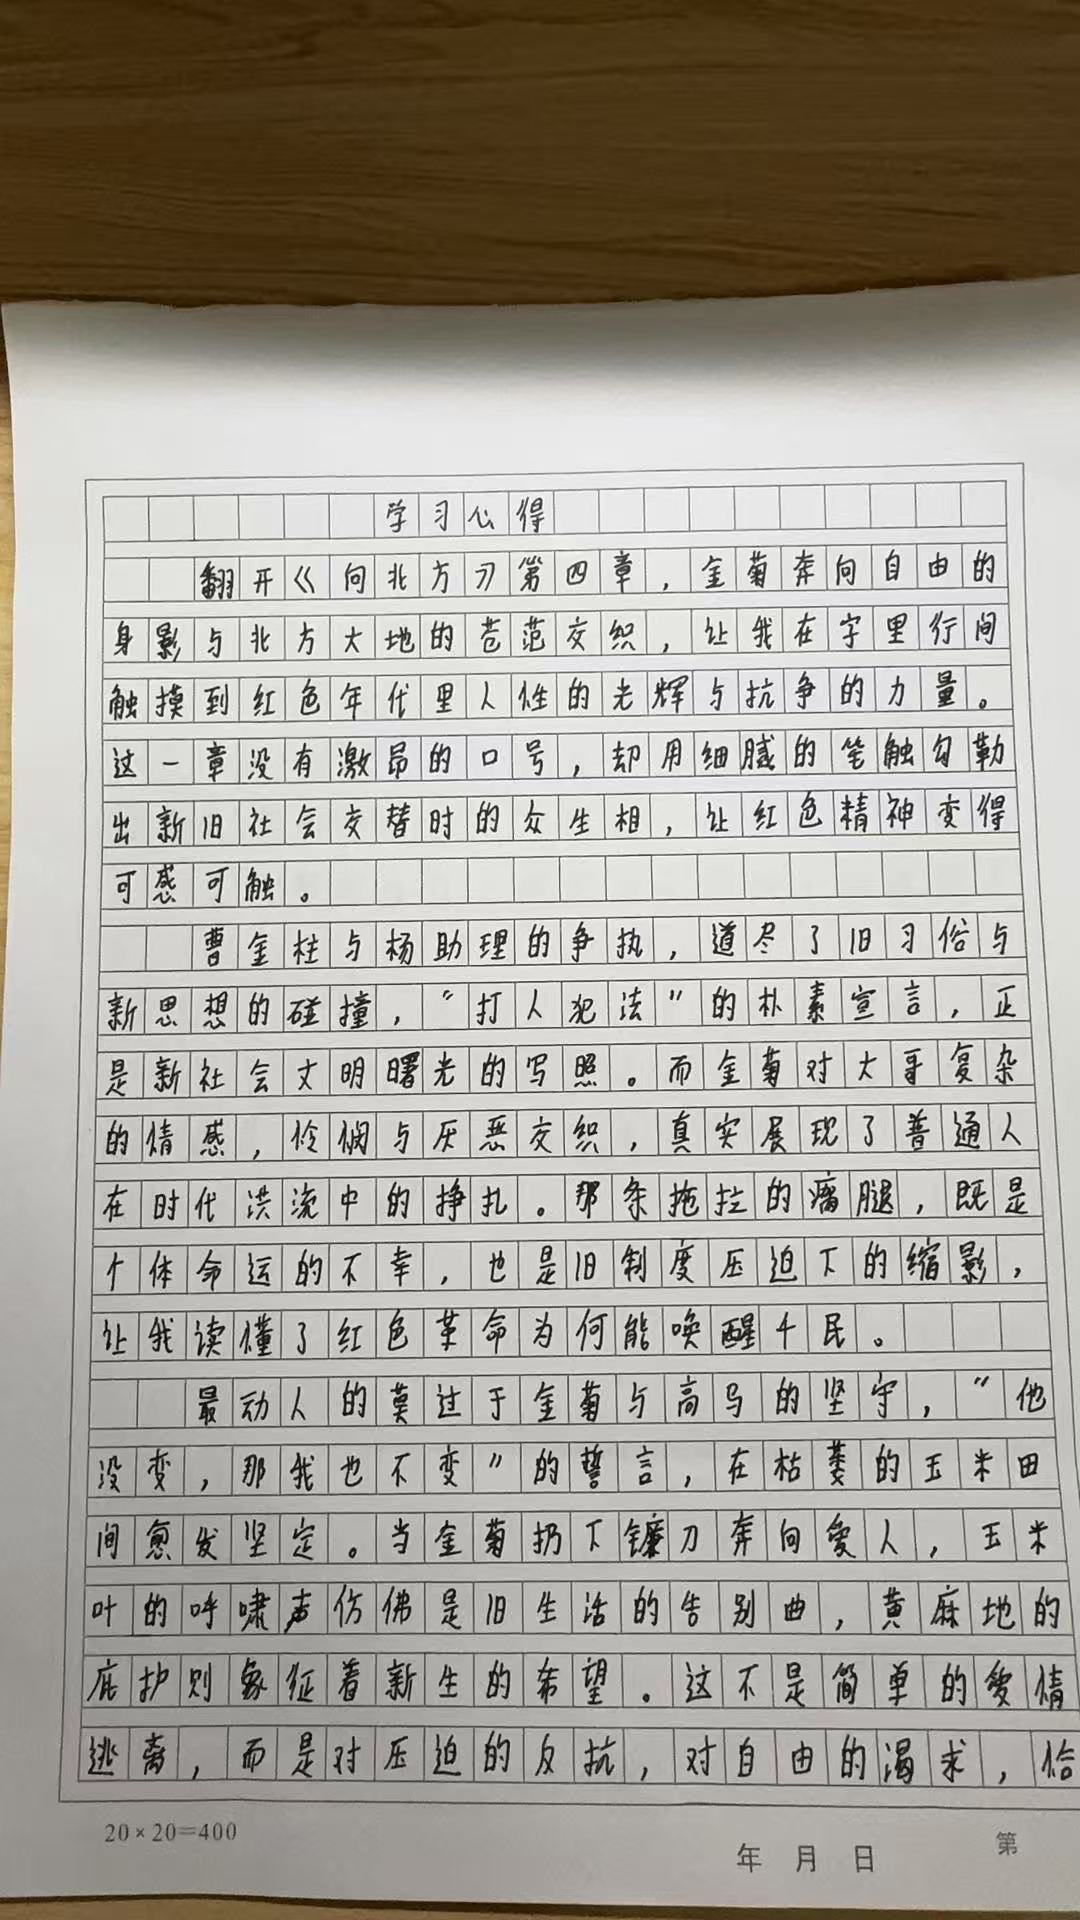 学习心得
翻开《向北方》第四章，金菊奔向自由的
身影与北方大地的苍茫交织，让我在字里行间
触摸到红色年代里人性的光辉与抗争的力量。
这一章没有激昂的口号，却用细腻的笔触勾勒
出新旧社会交替时的众生相，让红色精神变得
可感可触。
曹金柱与杨助理的争执，道尽了旧习俗与
新思想的碰撞，“打人犯法”的朴素宣言，正
是新社会文明曙光的写照。而金菊对大哥复杂
的情感，怜悯与厌恶交织，真实展现了普通人
在时代洪流中的挣扎。那条拖拉的瘸腿，既是
个体命运的不幸，也是旧制度压迫下的缩影，
让我读懂了红色革命为何能唤醒千民。
最动人的莫过于金菊与高马的坚守，“他
没变，那我也不变”的誓言，在枯萎的玉米田
间愈发坚定。当金菊扔下镰刀奔向爱人，玉米
叶的呼啸声仿佛是旧生活的告别曲，黄麻地的
庇护则象征着新生的希望。这不是简单的爱情
逃离，而是对压迫的反抗，对自由的渴求，恰
20×20=400
年 月 日
第